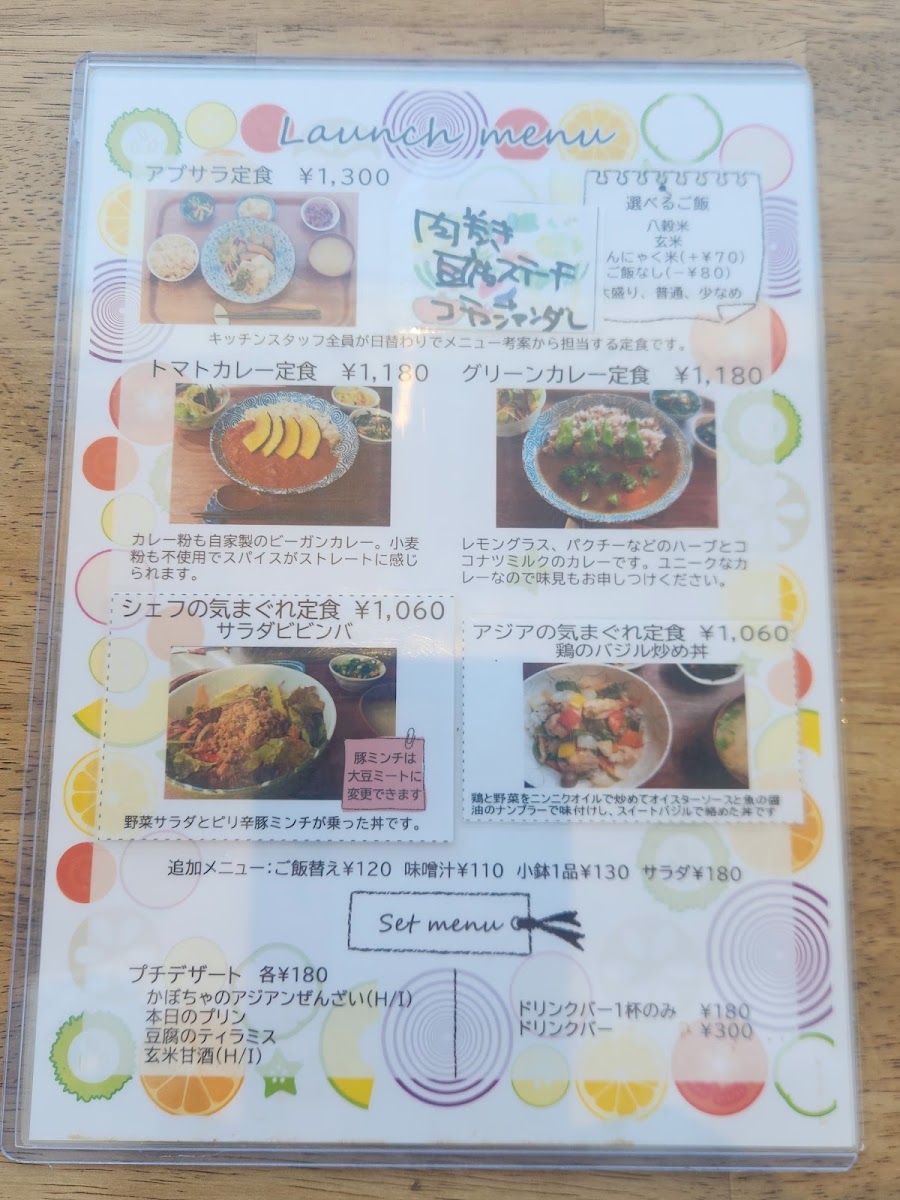 Launch menu
アプサラ定食 ¥1,300
肉巻き
豆腐ステーキ
選べるご飯
八穀米
玄米
んにゃく米(+¥70)
ご飯なし(-¥80)
大盛り、普通、少なめ
キッチンスタッフ全員が日替わりでメニュー考案から担当する定食です。
トマトカレー定食 ¥1,180
グリーンカレー定食 ¥1,180
カレー粉も自家製のビーガンカレー。小麦
粉も不使用でスパイスがストレートに感じ
られます。
レモングラス、パクチーなどのハーブとコ
コナツミルクのカレーです。ユニークなカ
レーなので味見もお申しつけください。
シェフの気まぐれ定食 ¥1,060
サラダビビンバ
豚ミンチは
大豆ミートに
変更できます
野菜サラダとピリ辛豚ミンチが乗った丼です。
アジアの気まぐれ定食 ¥1,060
鶏のバジル炒め丼
鶏と野菜をニンニクオイルで炒めてオイスターソースと魚の醤
油のナンプラーで味付けし、スイートバジルで絡めた丼です
追加メニュー:ご飯替え¥120 味噌汁¥110 小鉢1品¥130 サラダ¥180
Set menu
プチデザート 各¥180
かぼちゃのアジアンぜんざい(H/I)
本日のプリン
豆腐のティラミス
玄米甘酒(H/I)
ドリンクバー1杯のみ ¥180
ドリンクバー ¥300